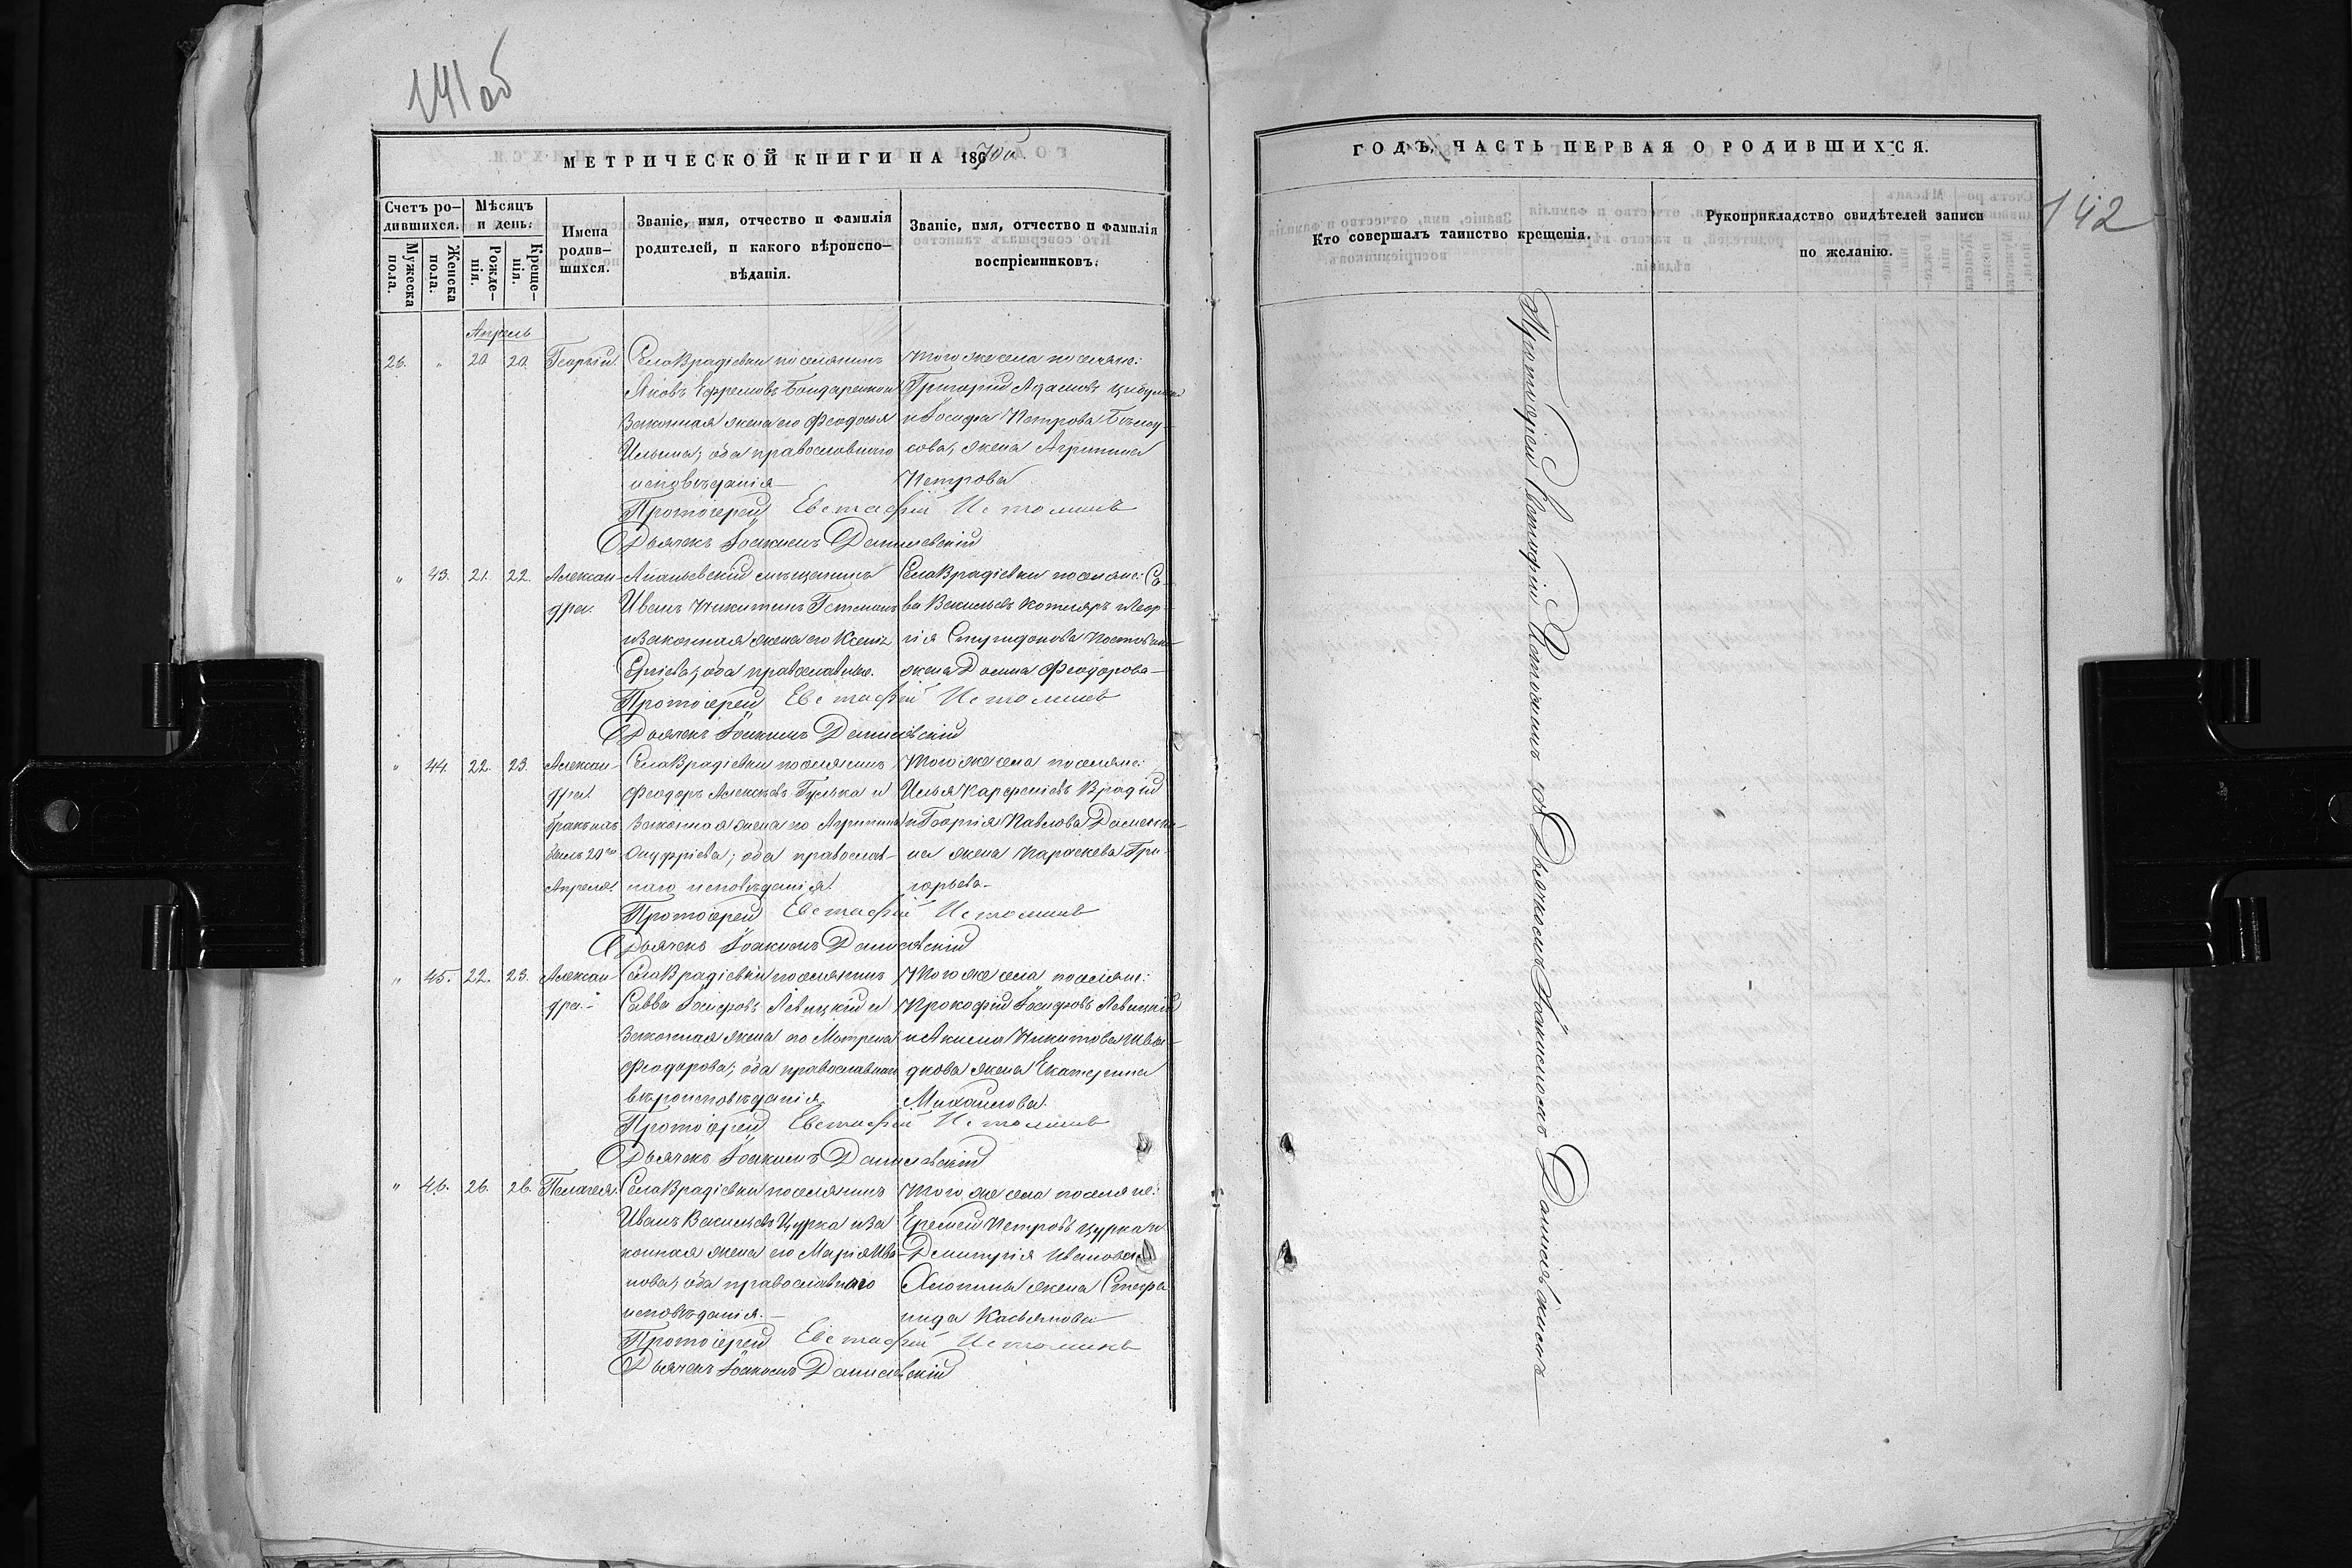 141 об
МЕТРИЧЕСКОЙ КНИГИ НА 1870й.
Счетъ ро-
дившихся.
Мѣсяцъ
и день:
Мужеска
пола.
Женска
пола.
Рожде-
нія.
Креще-
нія.
Имена
родив-
шихся.
Званіе, имя, отчество и фамилія
родителей, и какого вѣроиспо-
вѣданія.
Званіе, имя, отчество и фамилія
воспріемниковъ.
Апрель
26. " 20 20. Георгій.
Села Врадіевки поселянинъ
Яковъ Ефремовъ Бондаренко и
Законная жена его Феодосія
Ильина, оба православнаго
исповѣданія
Того же села поселяне:
Григорій Адамовъ
и Іосифа Петрова
сова, жена Агрипина
Петрова
Протоіерей Евстафій Истоминъ
Дьячекъ Іоакимъ Данилевскій
" 43. 21. 22. Алексан-
дра.
Ананьевскій мѣщанинъ
Иванъ Никитинъ Гетманъ
и законная жена его Ксенія
Сергіева, оба православные.
Села Врадіевки поселяне: Са-
ва Васильевъ Котляръ и Геор-
гія Спиридонова
жена Домна Феодорова
Протоіерей Евстафій Истоминъ
Дьячекъ Іоакимъ Данилевскій
" 44. 22. 23. Алексан-
дра.
20го
Апреля.
Села Врадіевки поселянинъ
Феодоръ Алексѣевъ Гулька и
Законная жена его Агрипина
Онуфріева; оба православ-
наго исповѣданія.
Того же села поселяне:
Илья Карфеніевъ Врадій
и Георгія Павлова
на жена Параскева Гри-
горьева
Протоіерей Евстафій Истоминъ
Дьячекъ Іоакимъ Данилевскій
" 45. 22. 23. Алексан-
дра.
Села Врадіевки поселянинъ
Савва Іосифовъ Левицкій и
Законная жена его Матрена
Феодорова; оба православнаго
вѣроисповѣданія
Того же села поселяне:
Прокофій Іосифовъ Левицкій
и Акима Никитова
жена Екатерина
Михаилова.
Протоіерей Евстафій Истоминъ
Дьячекъ Іоакимъ Данилевскій
" 46. 26. 26. Пелагея.
Села Врадіевки поселянинъ
Иванъ Васильевъ Цурка и за
конная жена его Марія Ива-
нова, оба православнаго
исповѣданія.
Того же села поселяне:
Еремей Петровъ Цурка и
Дмитрія Иванова
жена Стефа
нида Касьянова
Протоіерей Евстафій Истоминъ
Дьячекъ Іоакимъ Данилевскій
142
ГОДЪ, ЧАСТЬ ПЕРВАЯ О РОДИВШИХСЯ.
Кто совершалъ таинство крещенія.
Рукоприкладство свидѣтелей записи
по желанію.
Протоіерей Евстафій Истоминъ съ Дьячкомъ Іоакимомъ Данилевскимъ